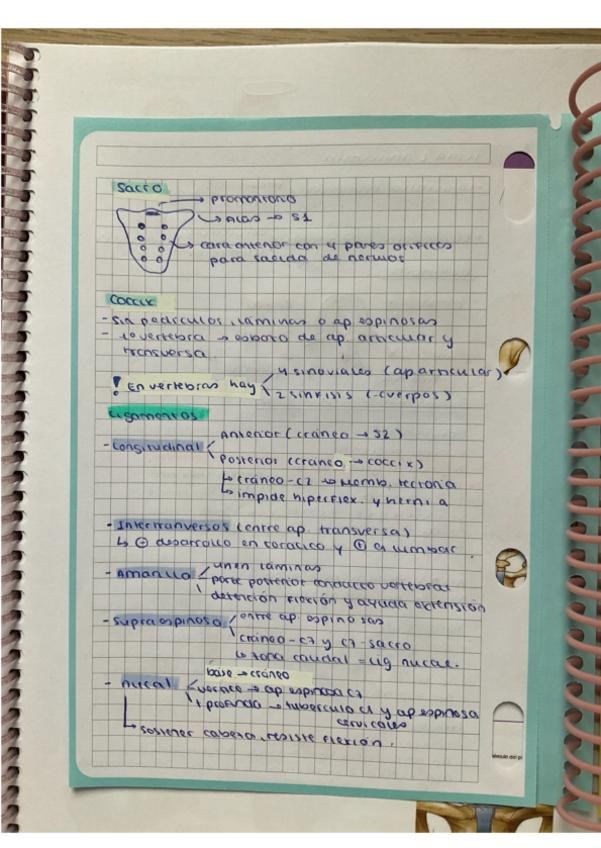 Sacro
→ promontorio
→ Alas → S1
→ cara anterior con 4 pares orificios
para salida de nervios
Coccix
- Sin pedículos, láminas o ap espinosas
- 1º vertebra → esbozo de ap. articular y
transversa.
! En vertebras hay
4 sinoviales (ap articular)
2 sínfisis (-cuerpos)
Ligamentos
- Longitudinal
Anterior (cráneo → S2)
Posterior (cráneo → coccix)
↳ cráneo-C2 → Memb. tectoria
↳ impide hiperflex. y hernia
- Intertranversos (entre ap. transversa)
↳ ⊖ desarrollo en torácico y ⊕ en lumbar.
- Amarillo
unen láminas
parte posterior conducto vertebras
detención flexión y ayuda extensión
- Supraespinoso
entre ap espinosas
cráneo-C7 y C7-sacro
↳ zona caudal = lig nucal.
- nucal
base → cráneo
vertice → ap espinosa C7
+ profunda → tubérculo C1 y ap espinosa
cervicales
↳ sostener cabeza, resiste flexión.